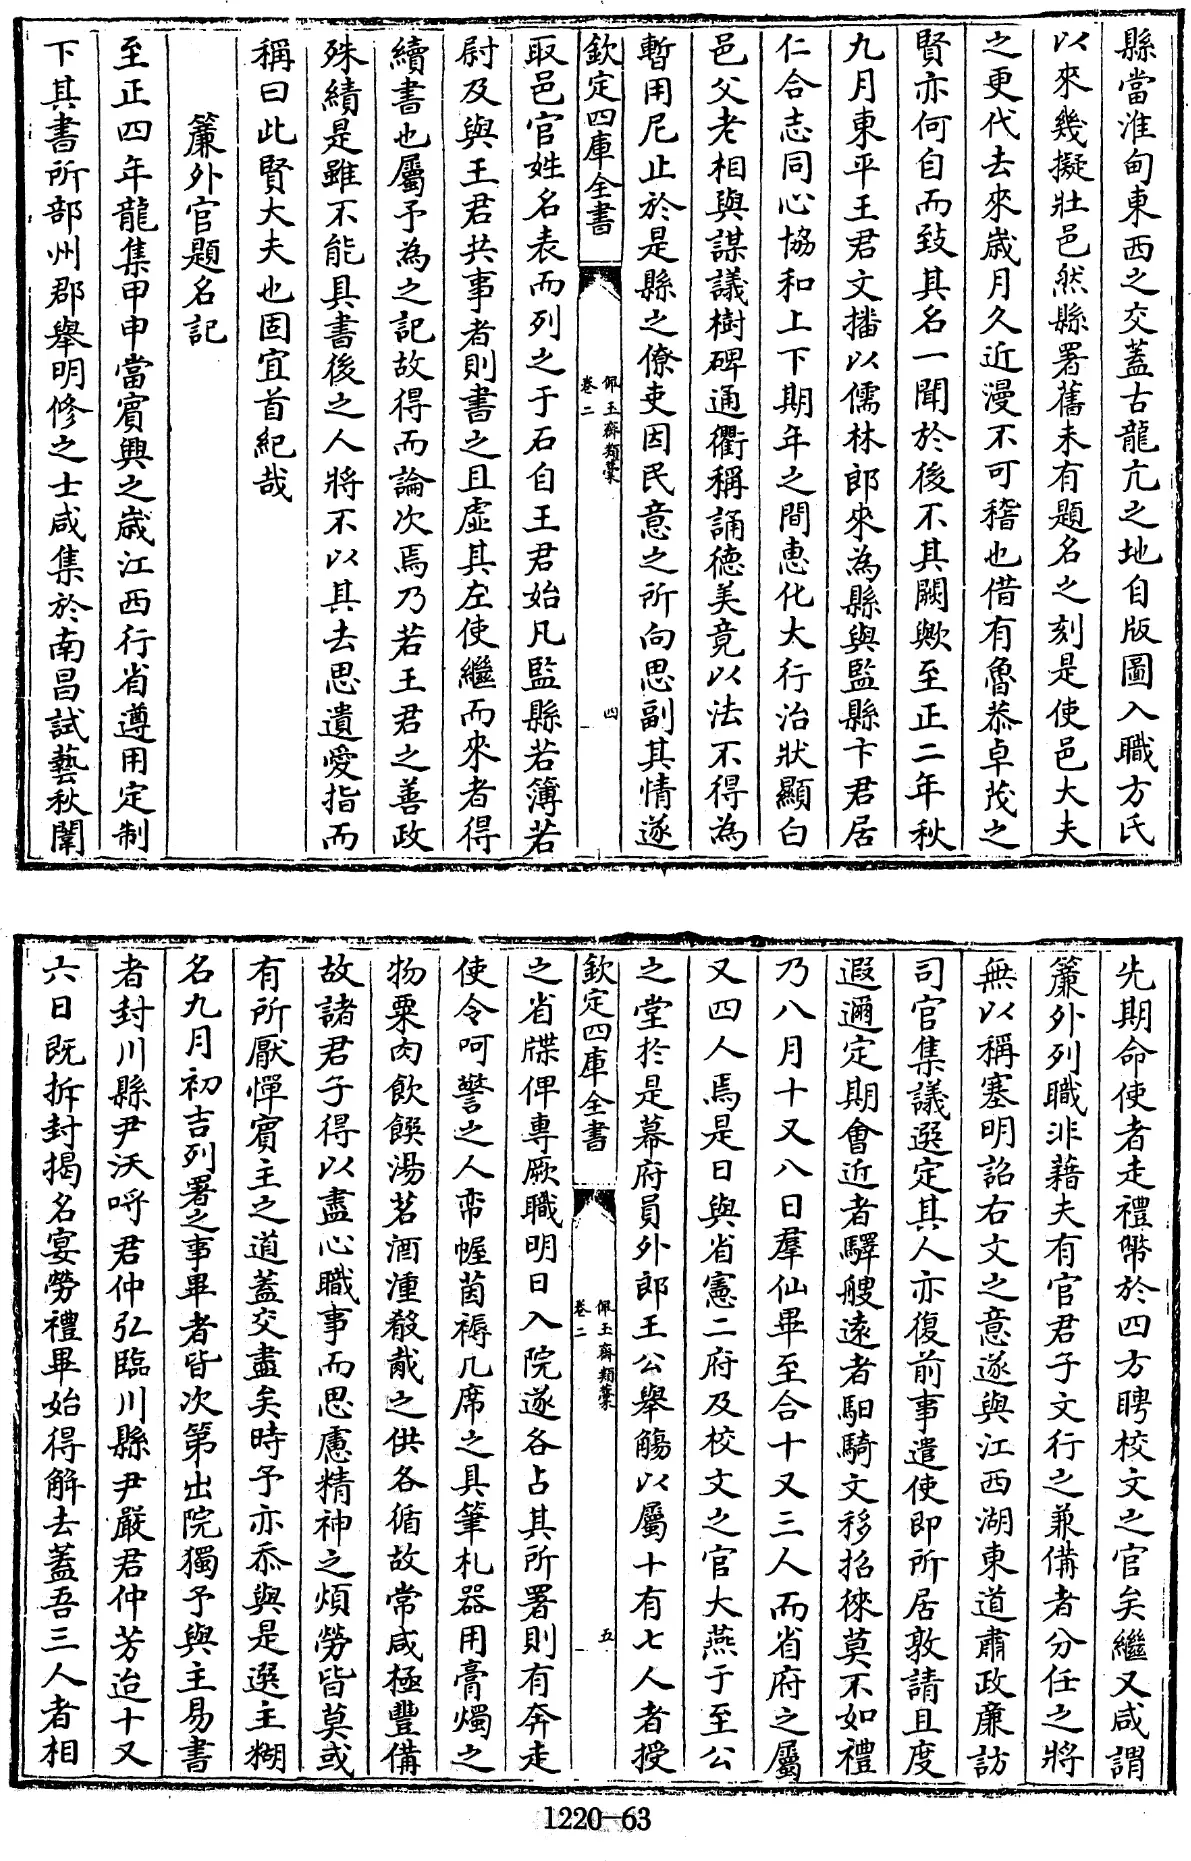 縣當淮甸東西之交蓋古龍亢之地自版圖入職方氏
以來幾擬壯邑然縣署舊未有題名之刻是使邑大夫
之更代去來歲月久近漫不可稽也借有魯恭卓茂之
賢亦何自而致其名一聞於後不其闕歟至正二年秋
九月東平王君文播以儒林郎來為縣與監縣卞君居
仁合志同心協和上下期年之間惠化大行治狀顯白
邑父老相與謀議樹碑通衢稱誦德美竟以法不得為
暫用尼止於是縣之僚吏因民意之所向思副其情遂
欽定四庫全書
佩玉齋類藁
卷二
四
取邑官姓名表而列之于石自王君始凡監縣若簿若
尉及與王君共事者則書之且虛其左使繼而來者得
續書也屬予為之記故得而論次焉乃若王君之善政
殊績是雖不能具書後之人將不以其去思遺愛指而
稱曰此賢大夫也固宜首紀哉
簾外官題名記
至正四年龍集甲申當賓興之歲江西行省遵用定制
下其書所部州郡舉明修之士咸集於南昌試藝秋闈
先期命使者走禮幣於四方聘校文之官矣繼又咸謂
簾外列職非藉夫有官君子文行之兼備者分任之將
無以稱塞明詔右文之意遂與江西湖東道肅政廉訪
司官集議選定其人亦復前事遣使即所居敦請且度
遐邇定期會近者驛艘遠者馹騎文移招徠莫不如禮
乃八月十又八日羣仙畢至合十又三人而省府之屬
又四人焉是日與省憲二府及校文之官大燕于至公
之堂於是幕府員外郎王公舉觴以屬十有七人者授
欽定四庫全書
佩玉齋類藁
卷二
五
之省牒俾專厥職明日入院遂各占其所署則有奔走
使令呵警之人帟幄茵褥几席之具筆札器用膏燭之
物粟肉飲饌湯茗酒湩殽胾之供各循故常咸極豐備
故諸君子得以盡心職事而思慮精神之煩勞皆莫或
有所厭憚賓主之道蓋交盡矣時予亦忝與是選主糊
名九月初吉列署之事畢者皆次第出院獨予與主易書
者封川縣尹沃呼君仲弘臨川縣尹嚴君仲芳迨十又
六日既拆封揭名宴勞禮畢始得解去蓋吾三人者相
1220-63